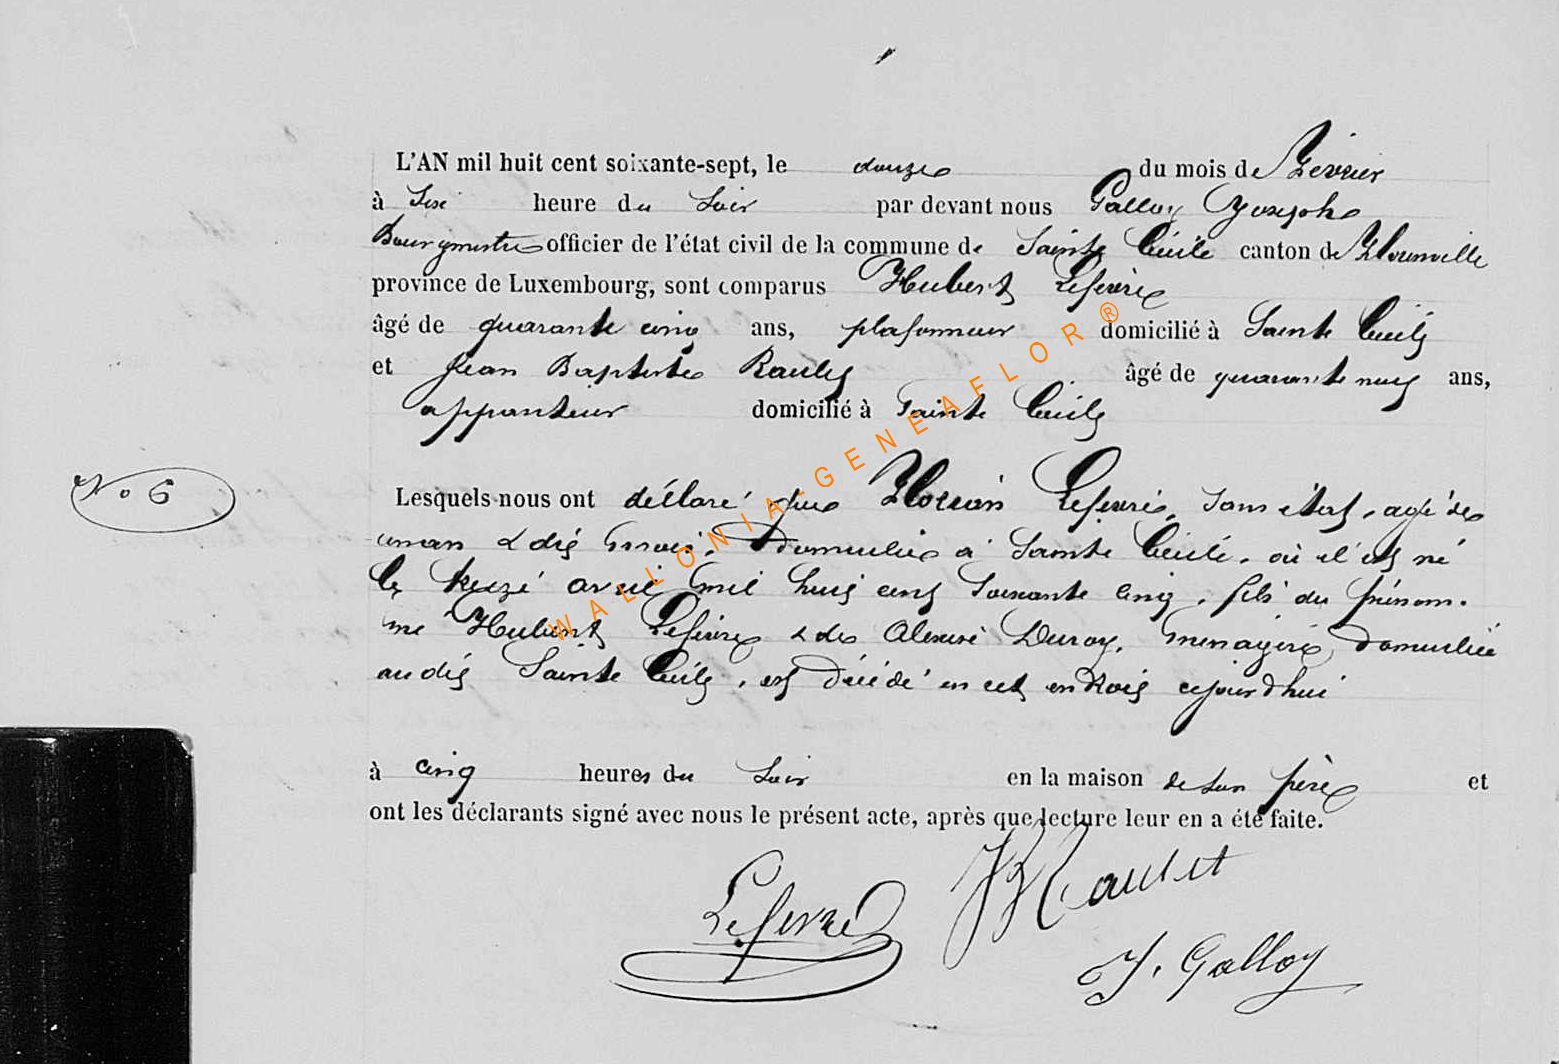 L'AN mil huit cent soixante-sept, le douze du mois de Février
à Six heure du Soir par devant nous Galloy Joseph
Bourgmestre officier de l'état civil de la commune de Sainte Cécile canton de Florenville
province de Luxembourg, sont comparus Hubert Lefèvre
âgé de quarante cinq ans, plafonneur domicilié à Sainte Cécile
et Jean Baptiste Raulet âgé de quarante neuf ans,
appariteur domicilié à Sainte Cécile
N° 6
Lesquels nous ont déclaré que Florian Lefevre, Sans état, agé de
un an & dix mois, domicilié à Sainte Cécile, où il est né
le treize avril mil huit cent Soixante cinq, fils du prénom-
mé Hubert Lefèvre & de Duroy, ménagère, domiciliée
au dit Sainte Cécile, est décédé en cet endroit cejourd'hui
à cinq heures du Soir en la maison de son père et
ont les déclarants signé avec nous le présent acte, après que lecture leur en a été faite.
Lefevre
JB Raulet
J. Galloy
WALLONIA-GENEAFLOR®